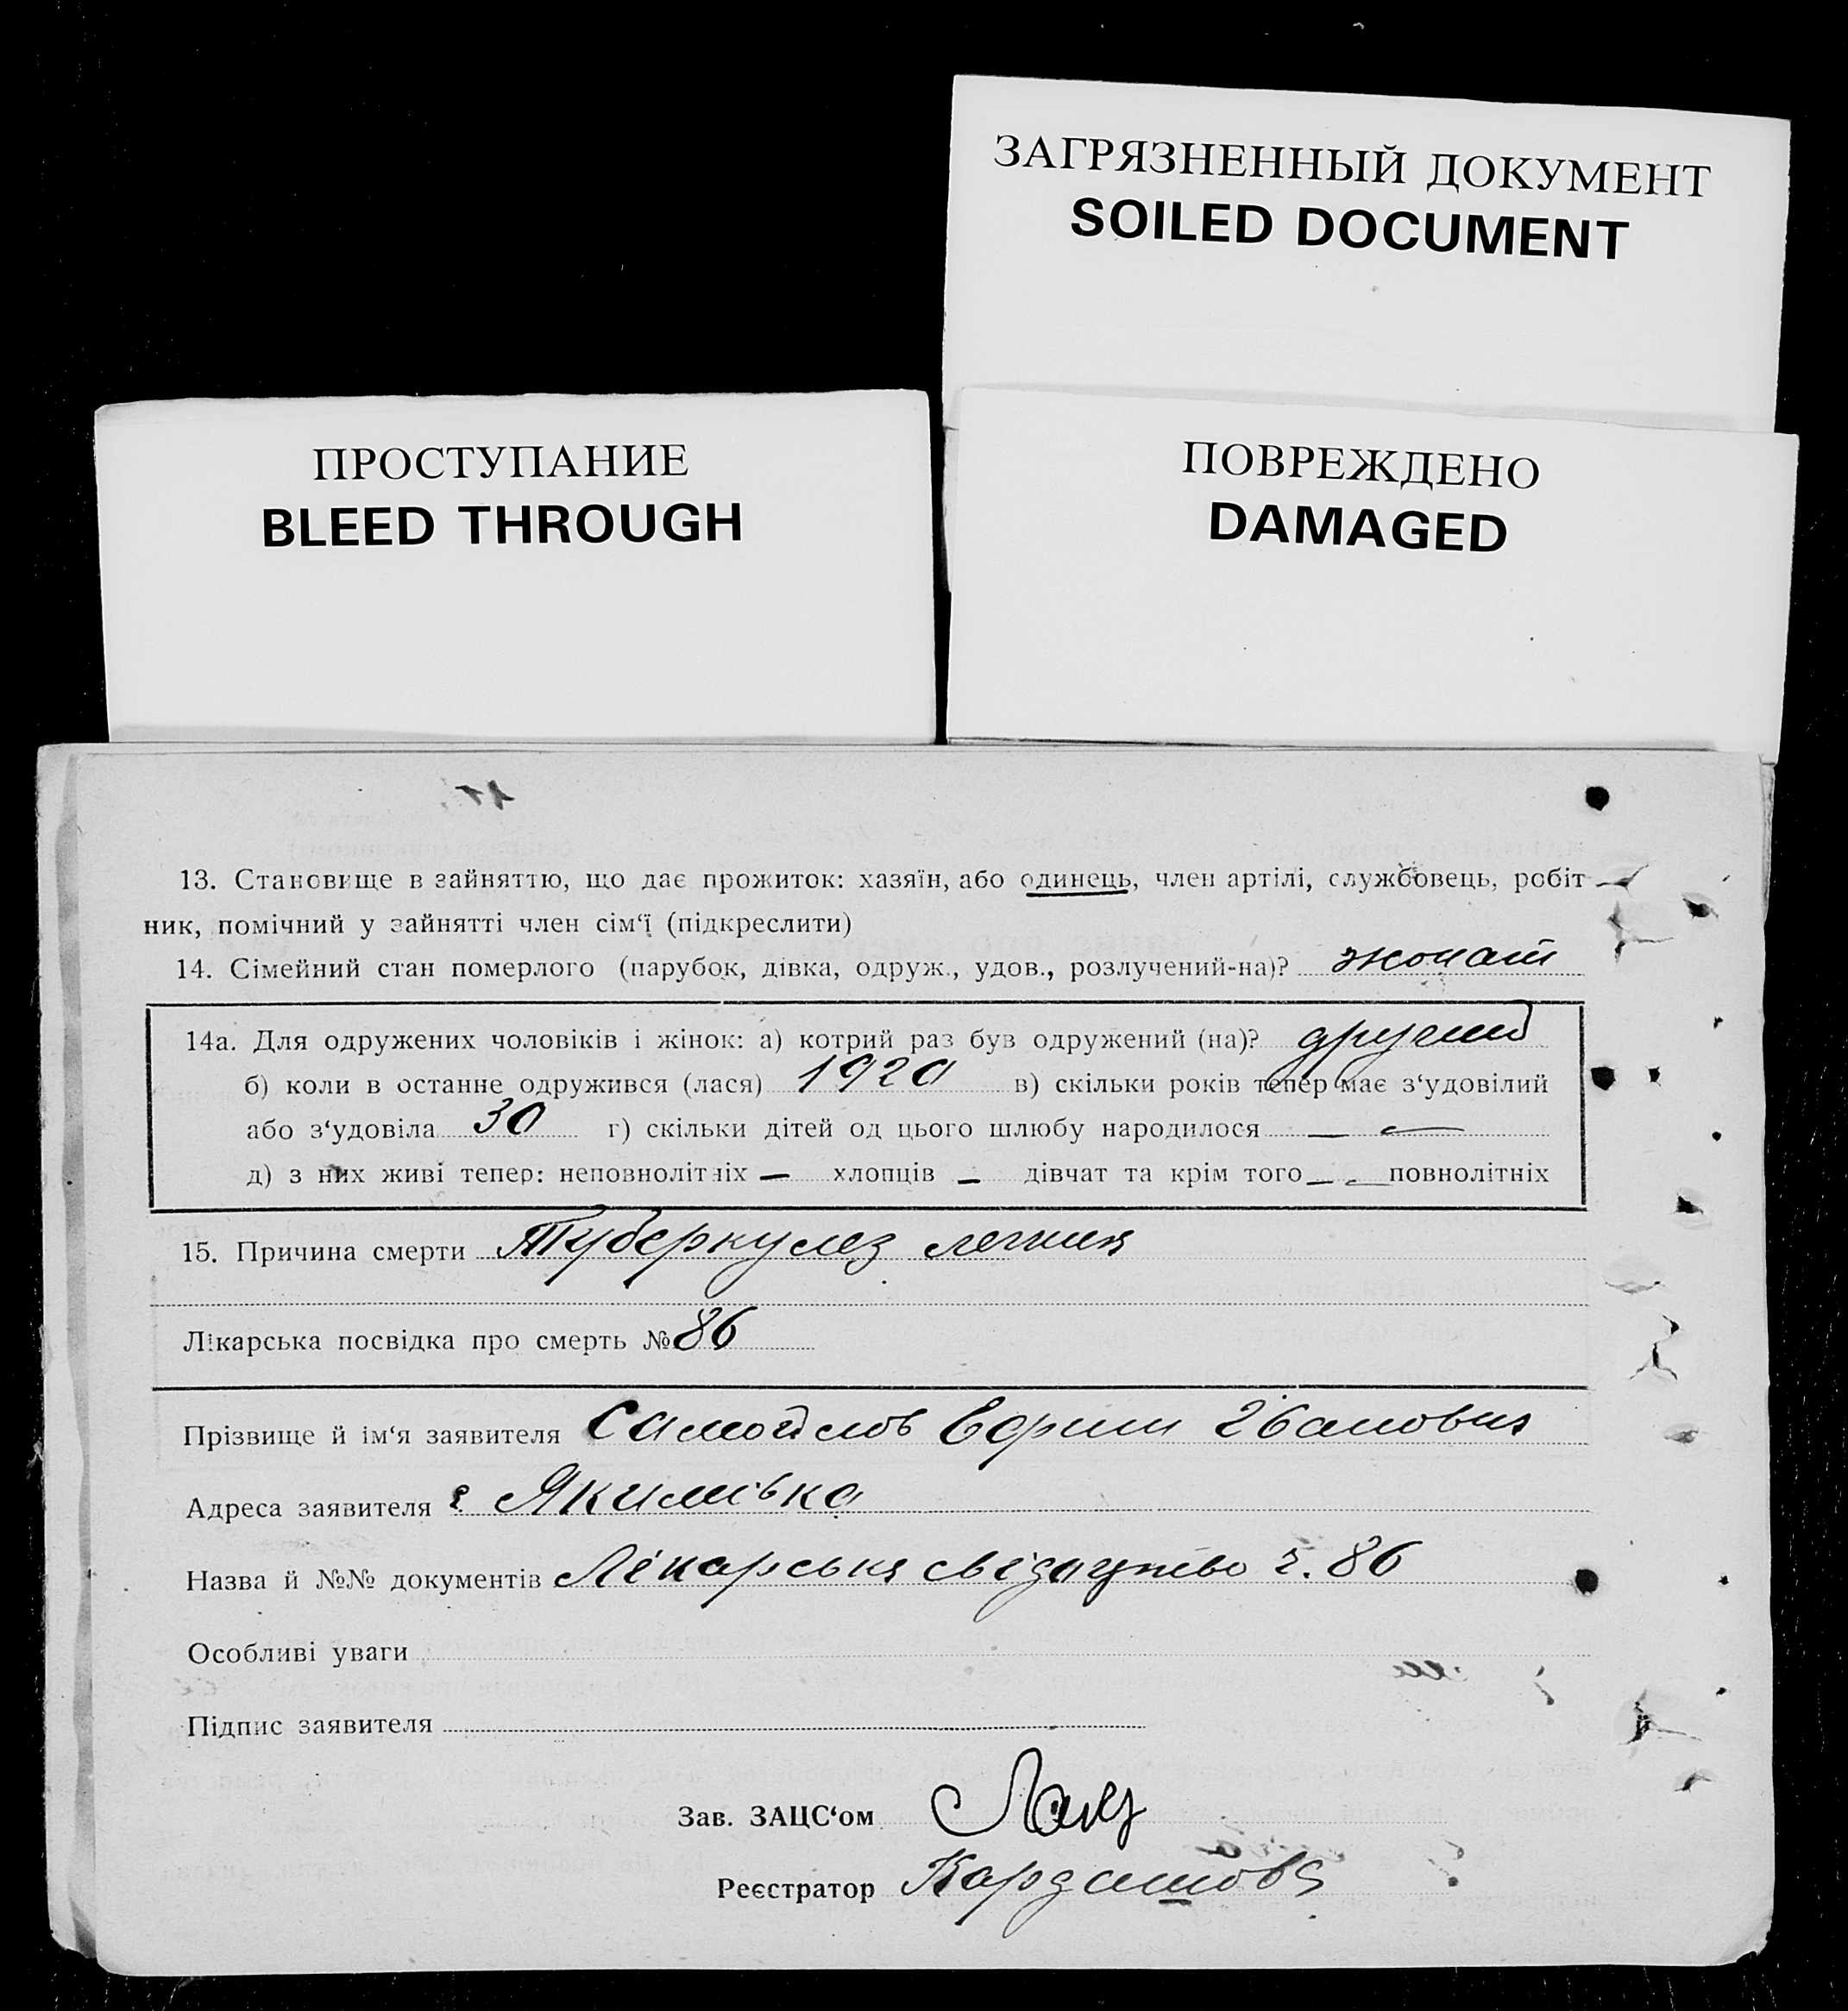 ЗАГРЯЗНЕННЫЙ ДОКУМЕНТ
SOILED DOCUMENT
ПРОСТУПАНИЕ
BLEED THROUGH
ПОВРЕЖДЕНО
DAMAGED
13. Становище в зайняттю, що дає прожиток: хазяїн, або одинець, член артілі, службовець, робіт
ник, помічний у зайнятті член сім‘ї (підкреслити)
14. Сімейний стан померлого (парубок, дівка, одруж., удов., розлучений-на)? жонат
14а. Для одружених чоловіків і жінок: а) котрий раз був одружений (на)? другий
б) коли в останнє одружився (лася) 1920 в) скільки років тепер має з‘удовілий
або з‘удовіла 30 г) скільки дітей од цього шлюбу народилося — —
д) з них живі тепер: неповнолітніх — хлопців — дівчат та крім того — — повнолітніх
15. Причина смерти Туберкулез легких
Лікарська посвідка про смерть № 86
Прізвище й ім‘я заявителя Самойлов Ефим Іванович
Адреса заявителя с. Якимівка
Назва й №№ документів Лікарське свідоцтво ч. 86
Особливі уваги
Підпис заявителя
Зав. ЗАЦС‘ом
Реєстратор Кардашова